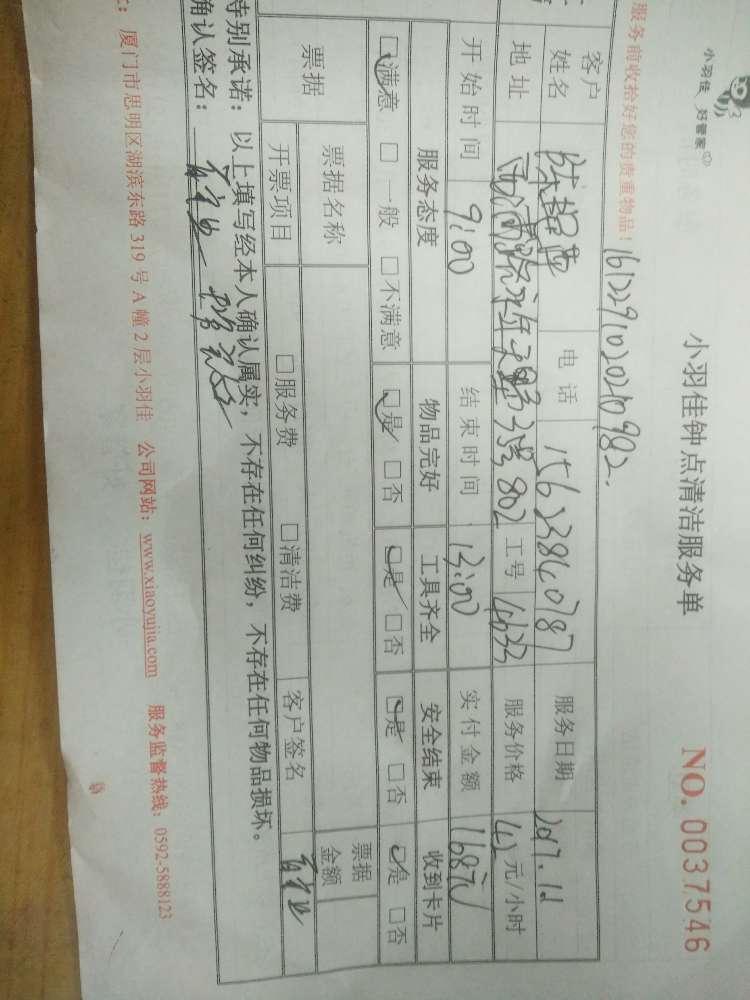 小羽佳 好管家
小羽佳钟点清洁服务单
NO. 0037546
服务前收拾好您的贵重物品！
161229102040982.
客户姓名 电话 15623840787 服务日期 2017.1.1
地址 工号 4633 服务价格 42 元/小时
开始时间 9:00 结束时间 13:00 实付金额 168元
服务态度 物品完好 工具齐全 安全结束 收到卡片
☑满意 □一般 □不满意 ☑是 □否 ☑是 □否 ☑是 □否 ☑是 □否
票据 票据名称 票据金额
开票项目 □服务费 □清洁费 客户签名
特别承诺：以上填写经本人确认属实，不存在任何纠纷，不存在任何物品损坏。
确认签名：
：厦门市思明区湖滨东路 319 号 A 幢 2 层小羽佳 公司网站：www.xiaoyujia.com 服务监督热线：0592-5888123